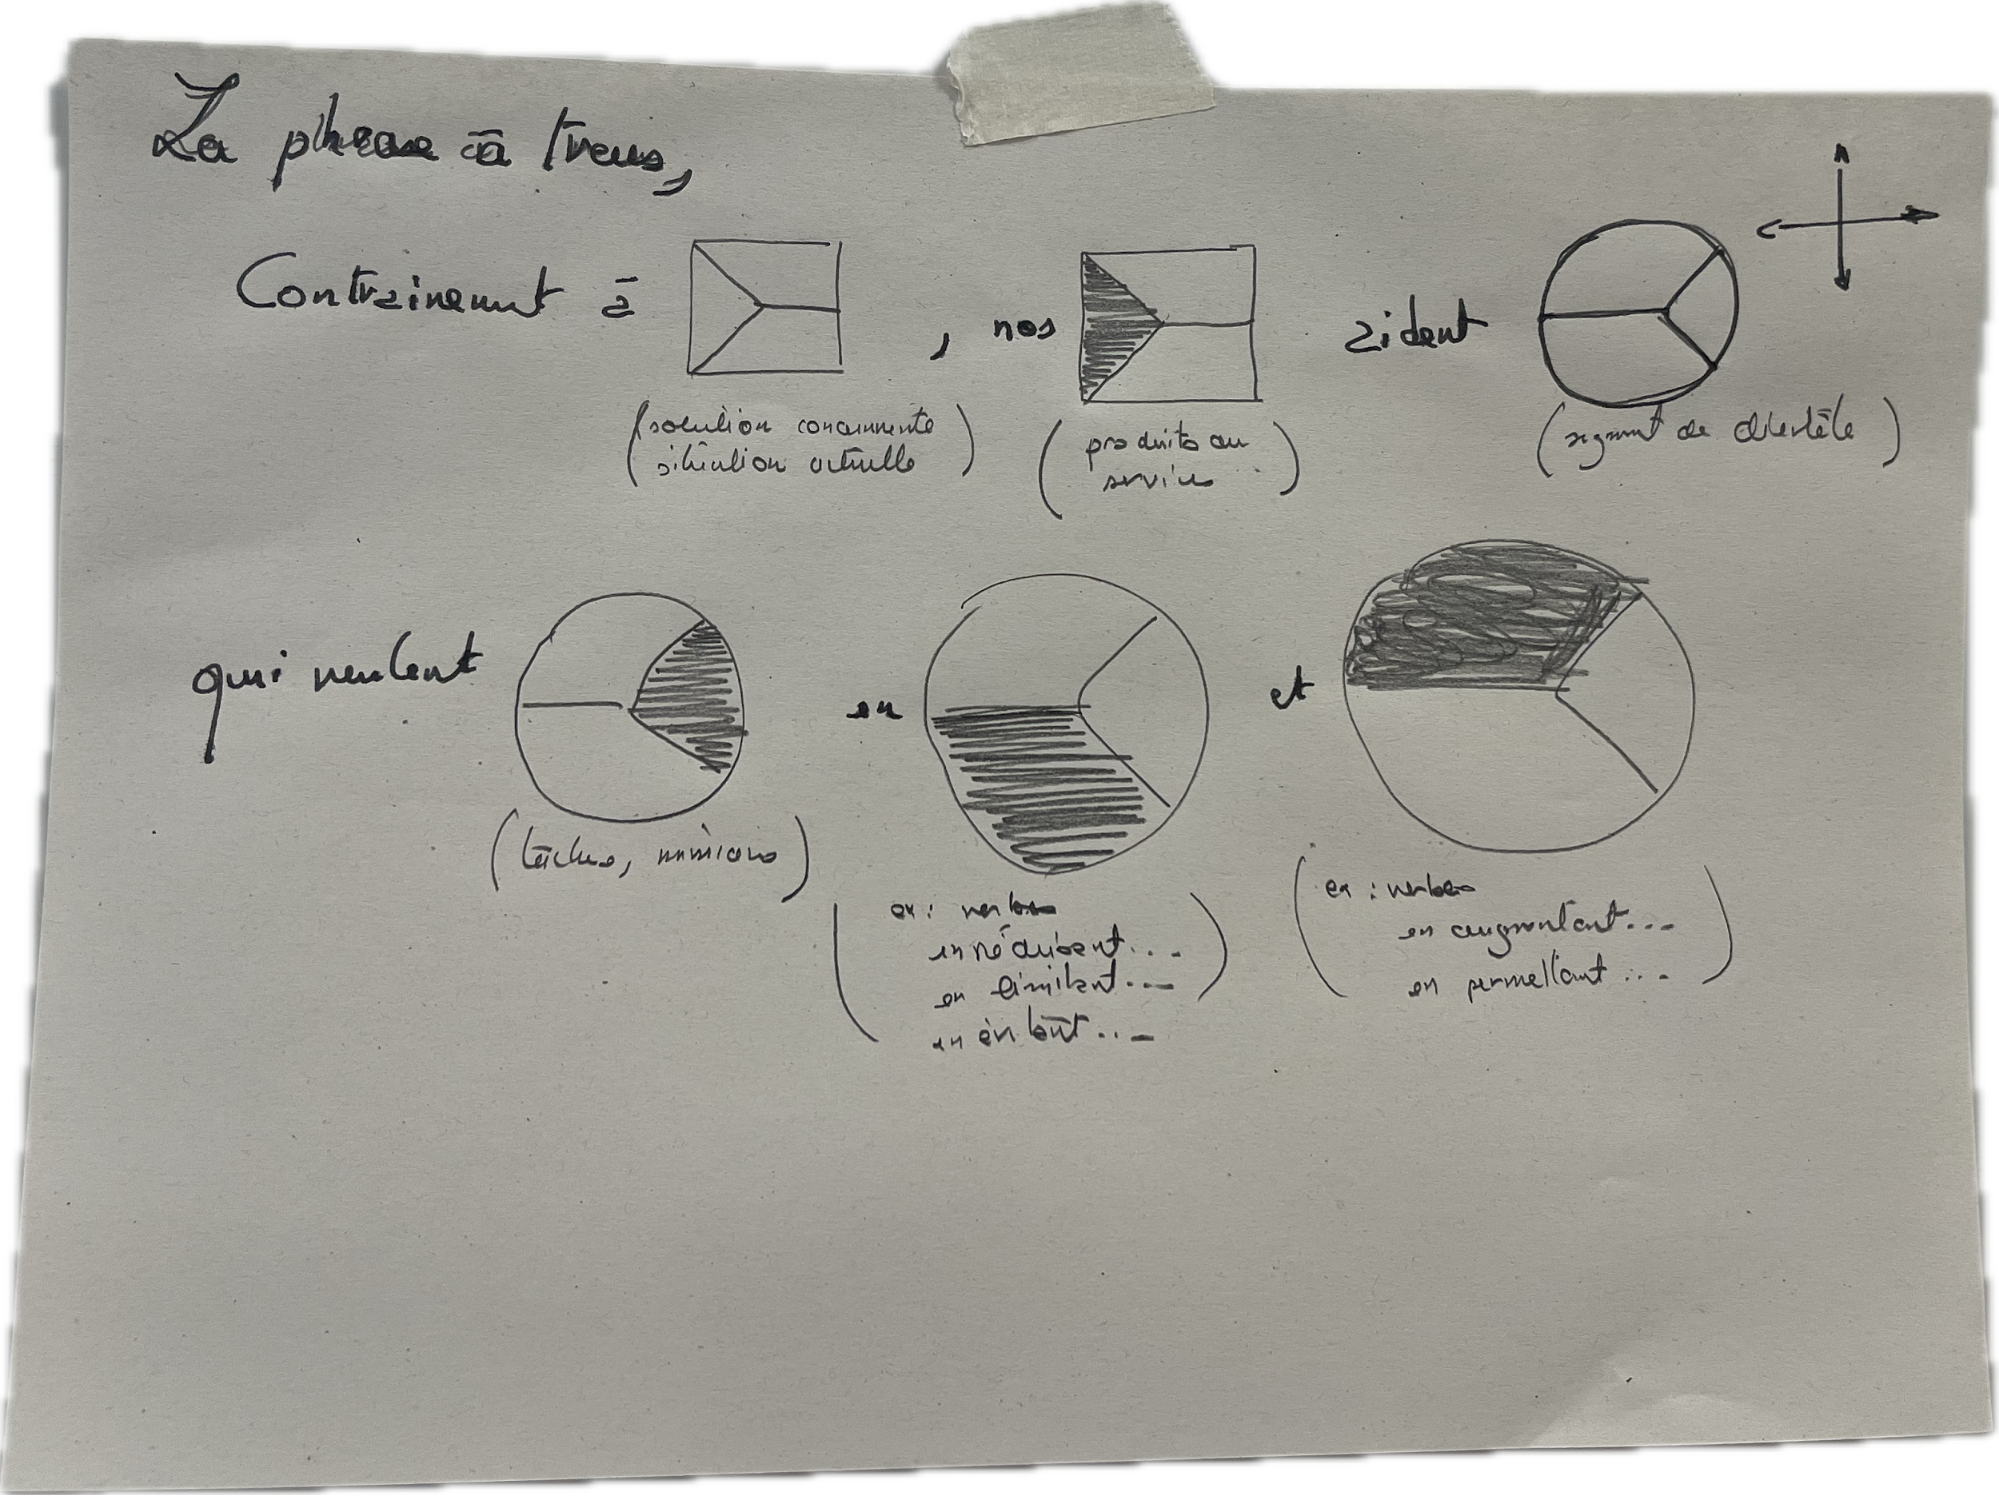 La phrase à trous,
Contrairement à , nos aident
(solution concurrente
situation actuelle)
(produits ou
services)
(segment de clientèle)
qui veulent en et
(tâches, missions)
(ex : verbes
en réduisant...
en limitant...
en évitant...)
(ex : verbes
en augmentant...
en permettant...)